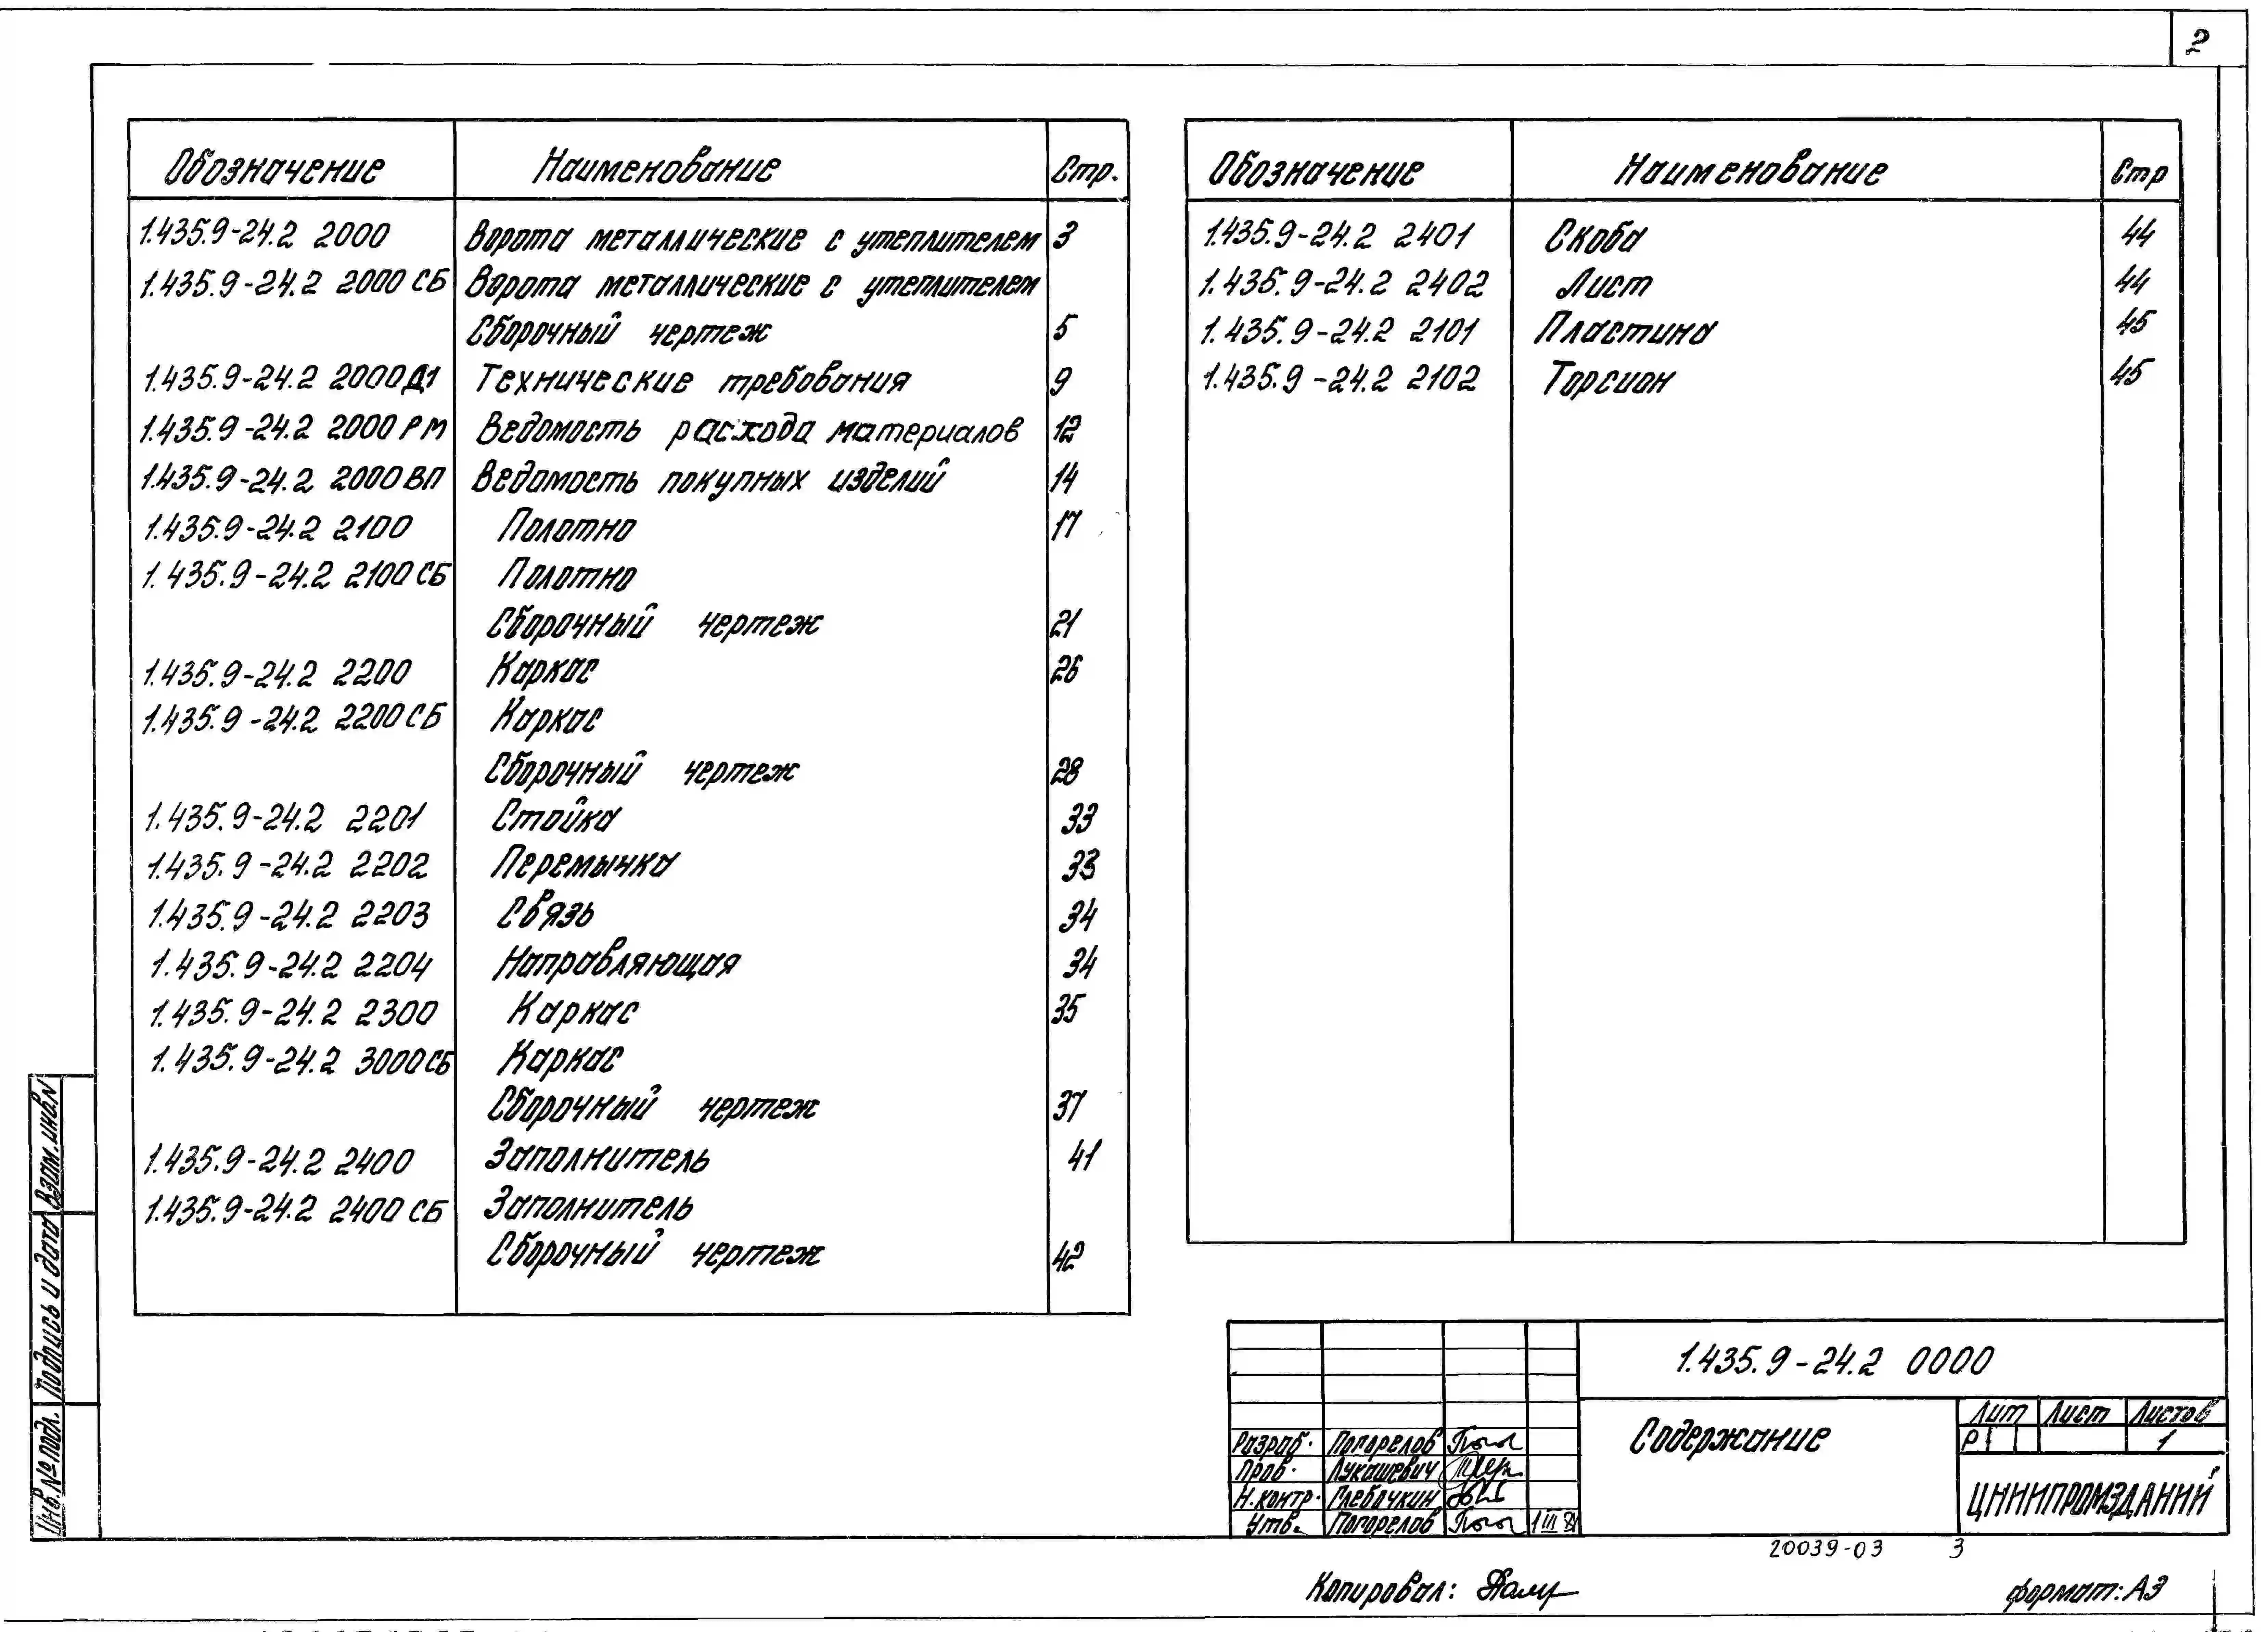 2
Обозначение Наименование Стр.
1.435.9-24.2 2000 Ворота металлические с утеплителем 3
1.435.9-24.2 2000 СБ Ворота металлические с утеплителем
Сборочный чертеж 5
1.435.9-24.2 2000Д1 Технические требования 9
1.435.9-24.2 2000 РМ Ведомость расхода материалов 12
1.435.9-24.2 2000 ВП Ведомость покупных изделий 14
1.435.9-24.2 2100 Полотно 17
1.435.9-24.2 2100 СБ Полотно
Сборочный чертеж 21
1.435.9-24.2 2200 Каркас 26
1.435.9-24.2 2200 СБ Каркас
Сборочный чертеж 28
1.435.9-24.2 2201 Стойка 33
1.435.9-24.2 2202 Перемычка 33
1.435.9-24.2 2203 Связь 34
1.435.9-24.2 2204 Направляющая 34
1.435.9-24.2 2300 Каркас 35
1.435.9-24.2 3000 СБ Каркас
Сборочный чертеж 37
1.435.9-24.2 2400 Заполнитель 41
1.435.9-24.2 2400 СБ Заполнитель
Сборочный чертеж 42
Обозначение Наименование Стр
1.435.9-24.2 2401 Скоба 44
1.435.9-24.2 2402 Лист 44
1.435.9-24.2 2101 Пластина 45
1.435.9-24.2 2102 Торсион 45
Взам. инв. N
Подпись и дата
Инв. № подл.
1.435.9-24.2 0000
Содержание
Лит Лист Листов
Р 1
ЦНИИПРОМЗДАНИЙ
Разраб. Погорелов
Пров. Лукашевич
Н.контр. Глебочкин
Утв. Погорелов 1 III 84
20039-03 3
Копировал:
формат: А3